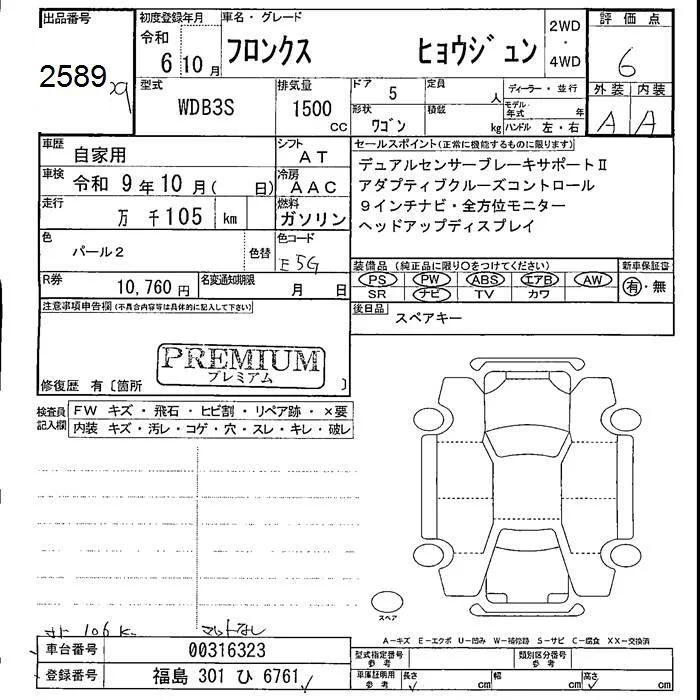 出品番号
2589
初度登録年月
令和
6 10 月
車名・グレード
フロンクス ヒョウジュン
2WD
・
4WD
評価点
6
外装 内装
A A
型式
WDB3S
排気量
1500
cc
ドア 5
形状
ワゴン
定員
人
積載
kg
ディーラー・並行
モデル年式 年
ハンドル 左・右
車歴
自家用
シフト
AT
車検
令和 9年10月( 日)
冷房
AAC
走行
万 千105 km
燃料
ガソリン
色
パール2
色替
色コード
E5G
R券
10,760 円
名変通知期限
月 日
セールスポイント(正常に機能するものに限ります)
デュアルセンサーブレーキサポートⅡ
アダプティブクルーズコントロール
9インチナビ・全方位モニター
ヘッドアップディスプレイ
装備品(純正品に限り○をつけてください)
PS PW ABS エアB AW
SR ナビ TV カワ
新車保証書
有・無
後日品
スペアキー
注意事項申告欄(不具合内容等は具体的に記入して下さい)
PREMIUM
プレミアム
修復歴 有〔箇所 〕
検査員記入欄
FW キズ・飛石・ヒビ割・リペア跡・×要
内装 キズ・汚レ・コゲ・穴・スレ・キレ・破レ
スペア
106K マットなし
A-キズ E-エクボ U-凹み W-補修跡 S-サビ C-腐食 XX-交換済
車台番号
00316323
登録番号
福島 301 ひ 6761
型式指定番号
参考
類別区分番号
参考
車庫証明用
参考
長さ cm
幅 cm
高さ cm